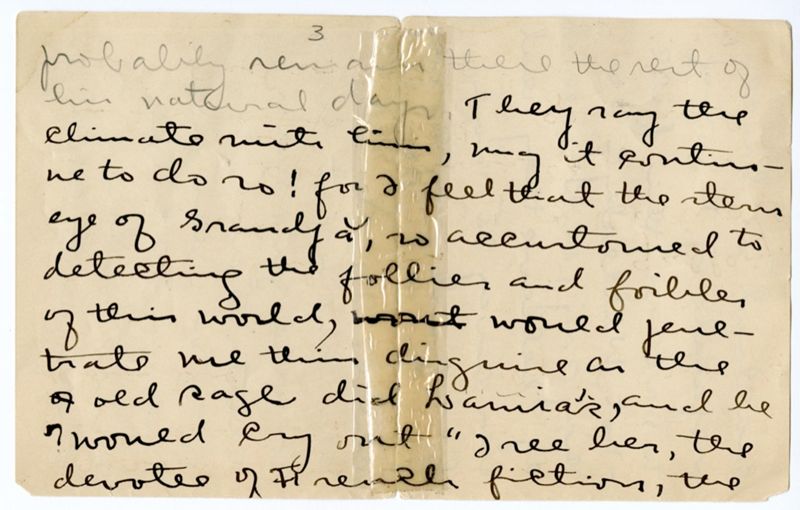 3
probably remain there the rest of
his natural days. They say the
climate suits him, may it contin-
ue to do so! for I feel that the stern
eye of Grandpa, so accustomed to
detecting the follies and foibles
of this world, would pene-
trate me thin disguise as the
old sage did Lamia's, and he
would cry out "I see her, the
devotee of French fiction, the